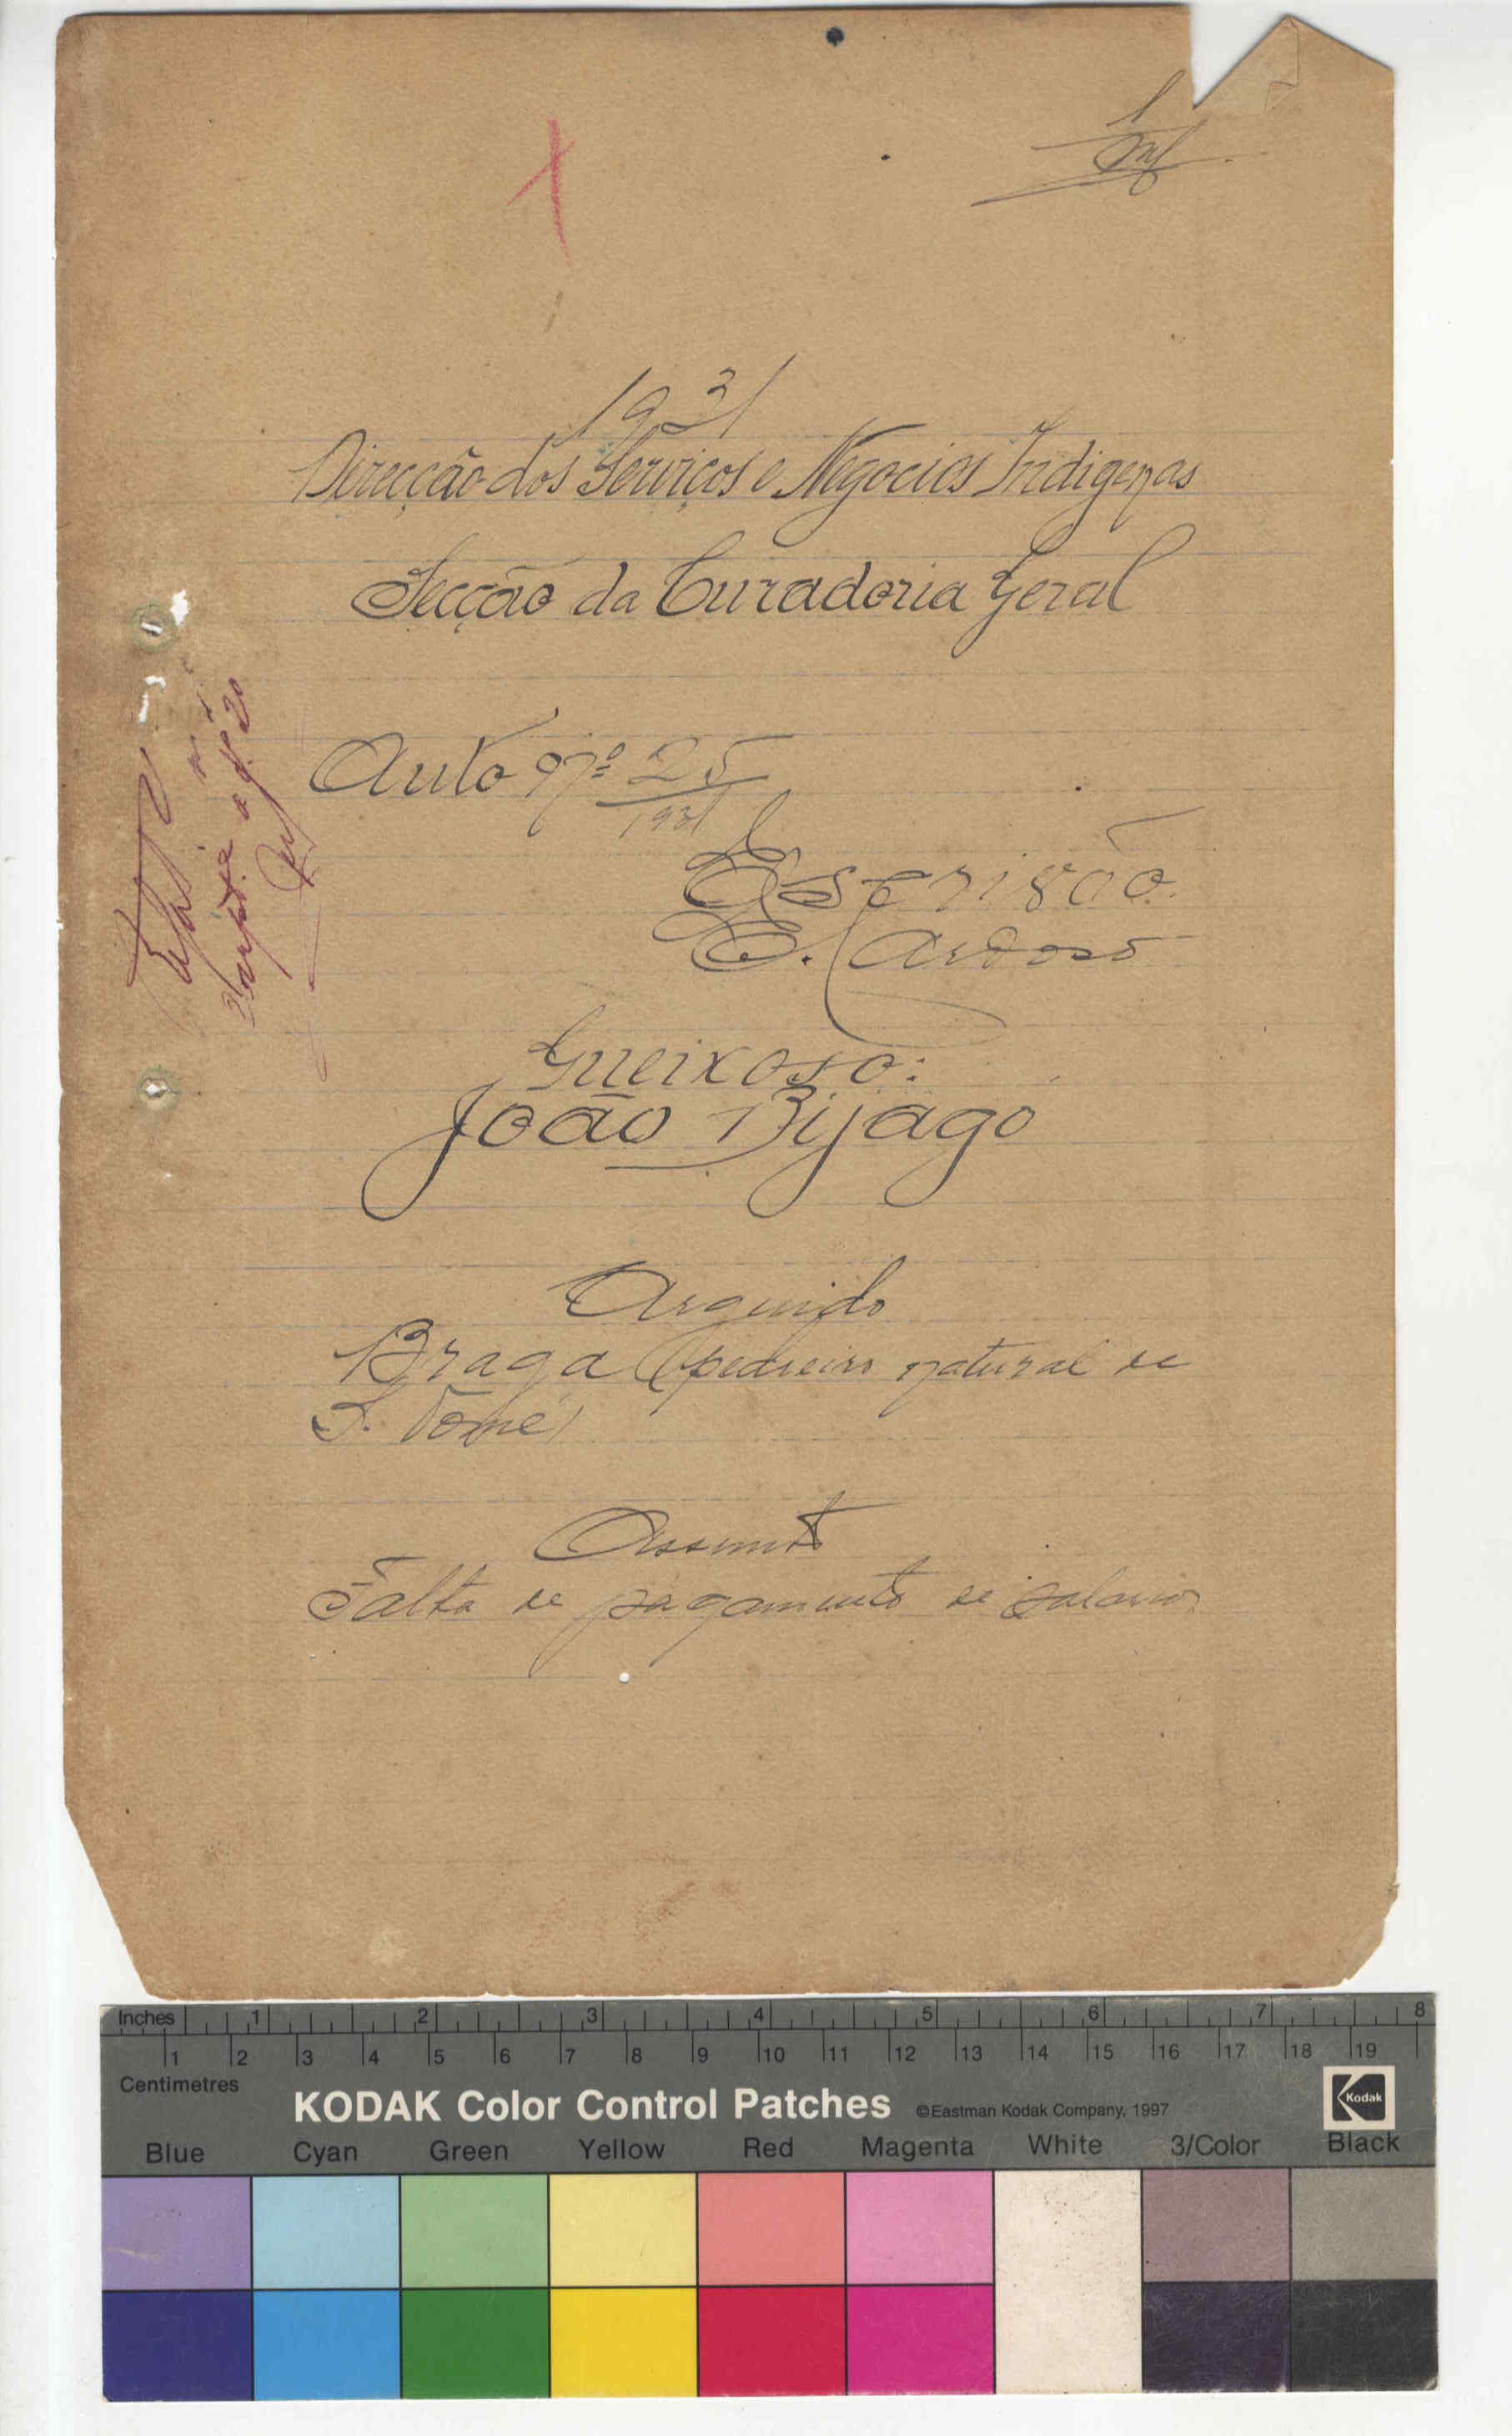 1
1
1931
Direcção dos Serviços e Negocios Indigenas
Secção da Curadoria Geral
Auto nº 25
1931
Escrivão
E. Cardoso
Queixoso:
João Bijagó
Arguido
Braga (pedreiro natural de
S. Tomé)
Assunto
Falta de pagamento de salarios
a fl. 20
Inches 1 2 3 4 5 6 7 8
1 2 3 4 5 6 7 8 9 10 11 12 13 14 15 16 17 18 19
Centimetres
KODAK Color Control Patches ©Eastman Kodak Company, 1997 Kodak
Blue Cyan Green Yellow Red Magenta White 3/Color Black